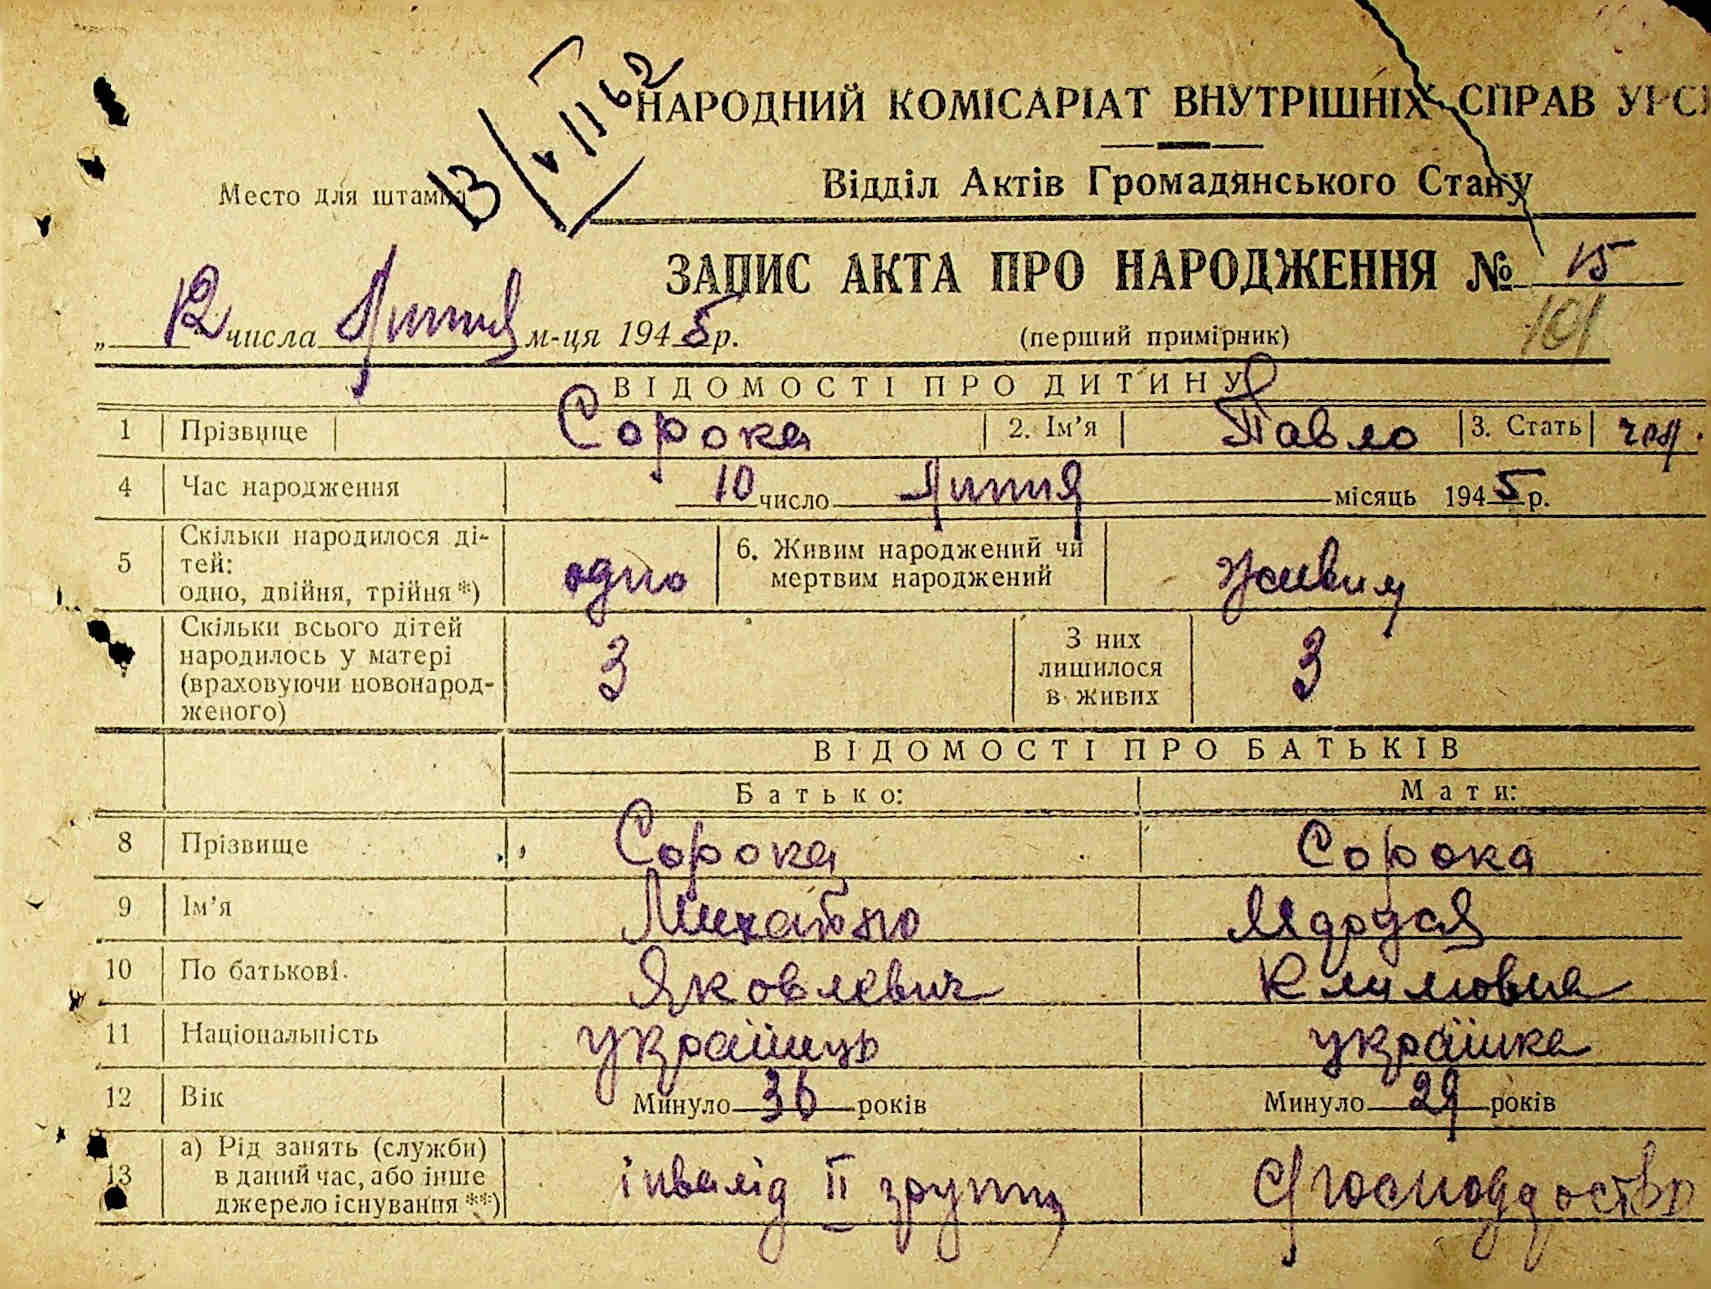 13/VIII 62
НАРОДНИЙ КОМІСАРІАТ ВНУТРІШНІХ СПРАВ УРСР
Відділ Актів Громадянського Стану
Место для штампа
ЗАПИС АКТА ПРО НАРОДЖЕННЯ № 15
„ 12 числа Липня м-ця 1945 р. (перший примірник) 101
ВІДОМОСТІ ПРО ДИТИНУ
1 Прізвище Сорока 2. Ім'я Павло 3. Стать чол.
4 Час народження 10 число Липня місяць 1945 р.
5 Скільки народилося ді-
тей:
одно, двійня, трійня *) одно 6. Живим народжений чи
мертвим народжений Живим
Скільки всього дітей
народилось у матері
(враховуючи новонарод-
женого) 3 З них
лишилося
в живих 3
ВІДОМОСТІ ПРО БАТЬКІВ
Батько: Мати:
8 Прізвище Сорока Сорока
9 Ім'я Михайло
10 По батькові Яковлевич Климовна
11 Національність українець українка
12 Вік Минуло 36 років Минуло 29 років
13 а) Рід занять (служби)
в даний час, або інше
джерело існування **) інвалід II групи